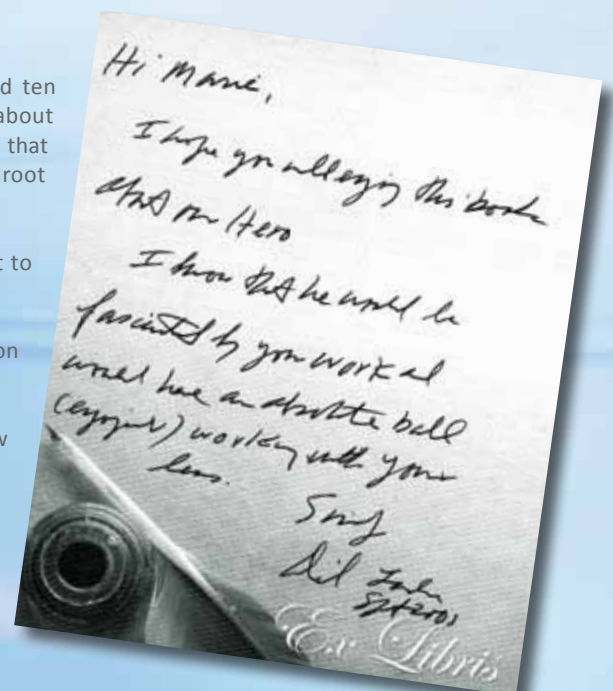 d ten
about
that
root
t to
on
w
Hi Marie,
I hope you will enjoy this book
about our Hero
I know that he would be
fascinated by your work and
would have an absolute ball
(enjoyed) working with your
lens.
Ex Libris